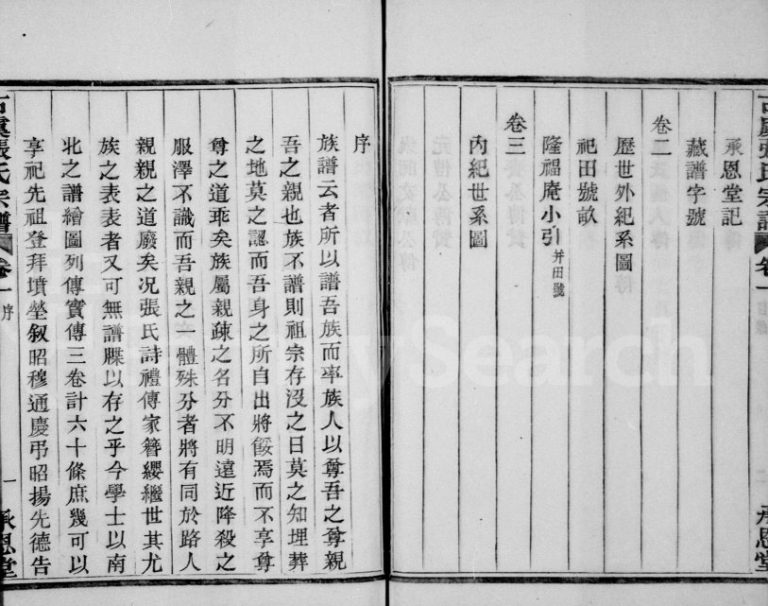 古虞張氏宗譜 卷一 承恩堂
承恩堂記
藏譜字號
卷二
歷世外紀系圖
祀田號畝
隆福庵小引 并田號
卷三
內紀世系圖
序
族譜云者所以譜吾族而率族人以尊吾之尊親
吾之親也族不譜則祖宗存沒之日莫之知埋葬
之地莫之認而吾身之所自出將餒焉而不享尊
尊之道乖矣族屬親疎之名分不明遠近降殺之
服澤不識而吾親之一體殊分者將有同於路人
親親之道廢矣况張氏詩禮傳家簪纓繼世其尤
族之表表者又可無譜牒以存之乎今學士以南
北之譜繪圖列傳實傳三卷計六十條庶幾可以
享祀先祖登拜墳塋叙昭穆通慶弔昭揚先德告
古虞張氏宗譜 卷一 序 一 承恩堂
ySearch